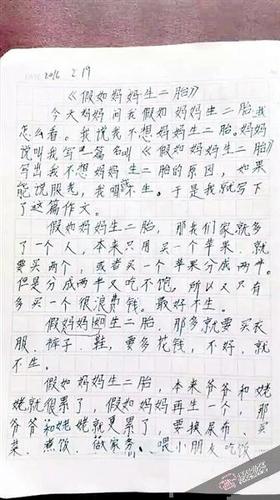 2016 2.19
《假如妈妈生二胎》
今天妈妈问我假如妈妈生二胎我
怎么看。我说我不想妈妈生二胎。妈妈
说叫我写一篇名叫《假如妈妈生二胎》
写出我不想妈妈生二胎的原因,如果
能说服老,我嘛不生。于是我就写下
了这篇作文。
假如妈妈生二胎,那我们家就多
了一个人,本来只用买一个苹果,就
要买两个,或者买一个苹果分成两半。
但是分成两半又吃不饱。所以又只有
多买一个很浪费钱。最好不生。
假妈妈如生二胎,那多就要买衣
服、裤子、鞋,要多花钱,不好,就
不生。
假如妈妈生二胎,本来爷爷和姥
姥就很累了,假如妈妈再生一个,那
爷爷和姥姥就更累了,要换尿布、买
菜、煮饭、做家务、喂小朋友吃饭